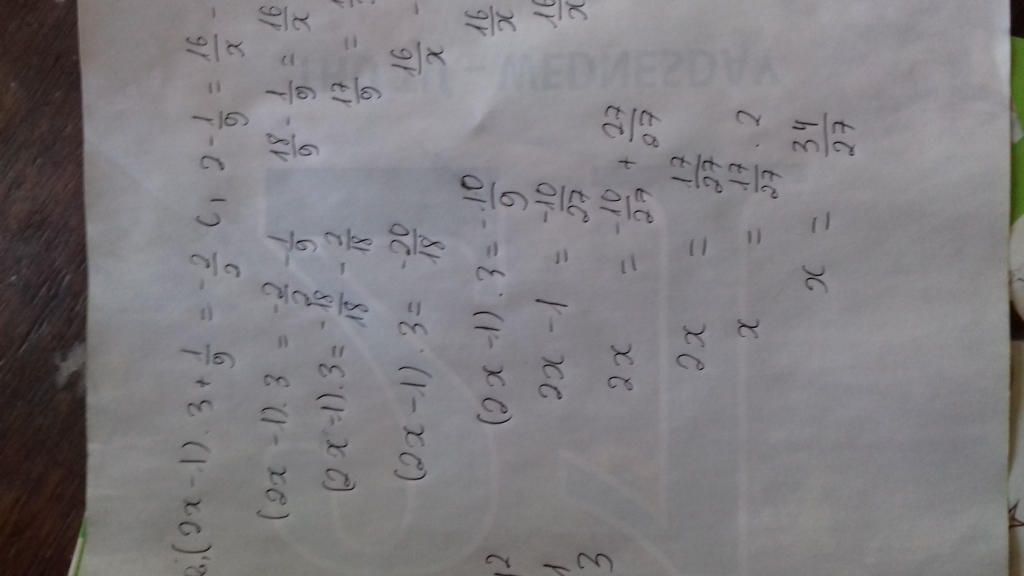 (2x-1).3+1/9 = -2/2
(2x-1).3 = -2/2 - 1/9
(2x-1).3 = -18/18 - 2/18
(2x-1).3 = -20/18
(2x-1).3 = -10/9
2x-1 = -10/27
2x = -10/27 + 27/27
2x = 17/27
x = 17/27 . 2
x = 34/27
c, 2-1/9 = 16/x -
18/9 - 1/9 = 16/x
17/9 =
16/x -
16/x
16/x
12
1
3
WEDNESDAY